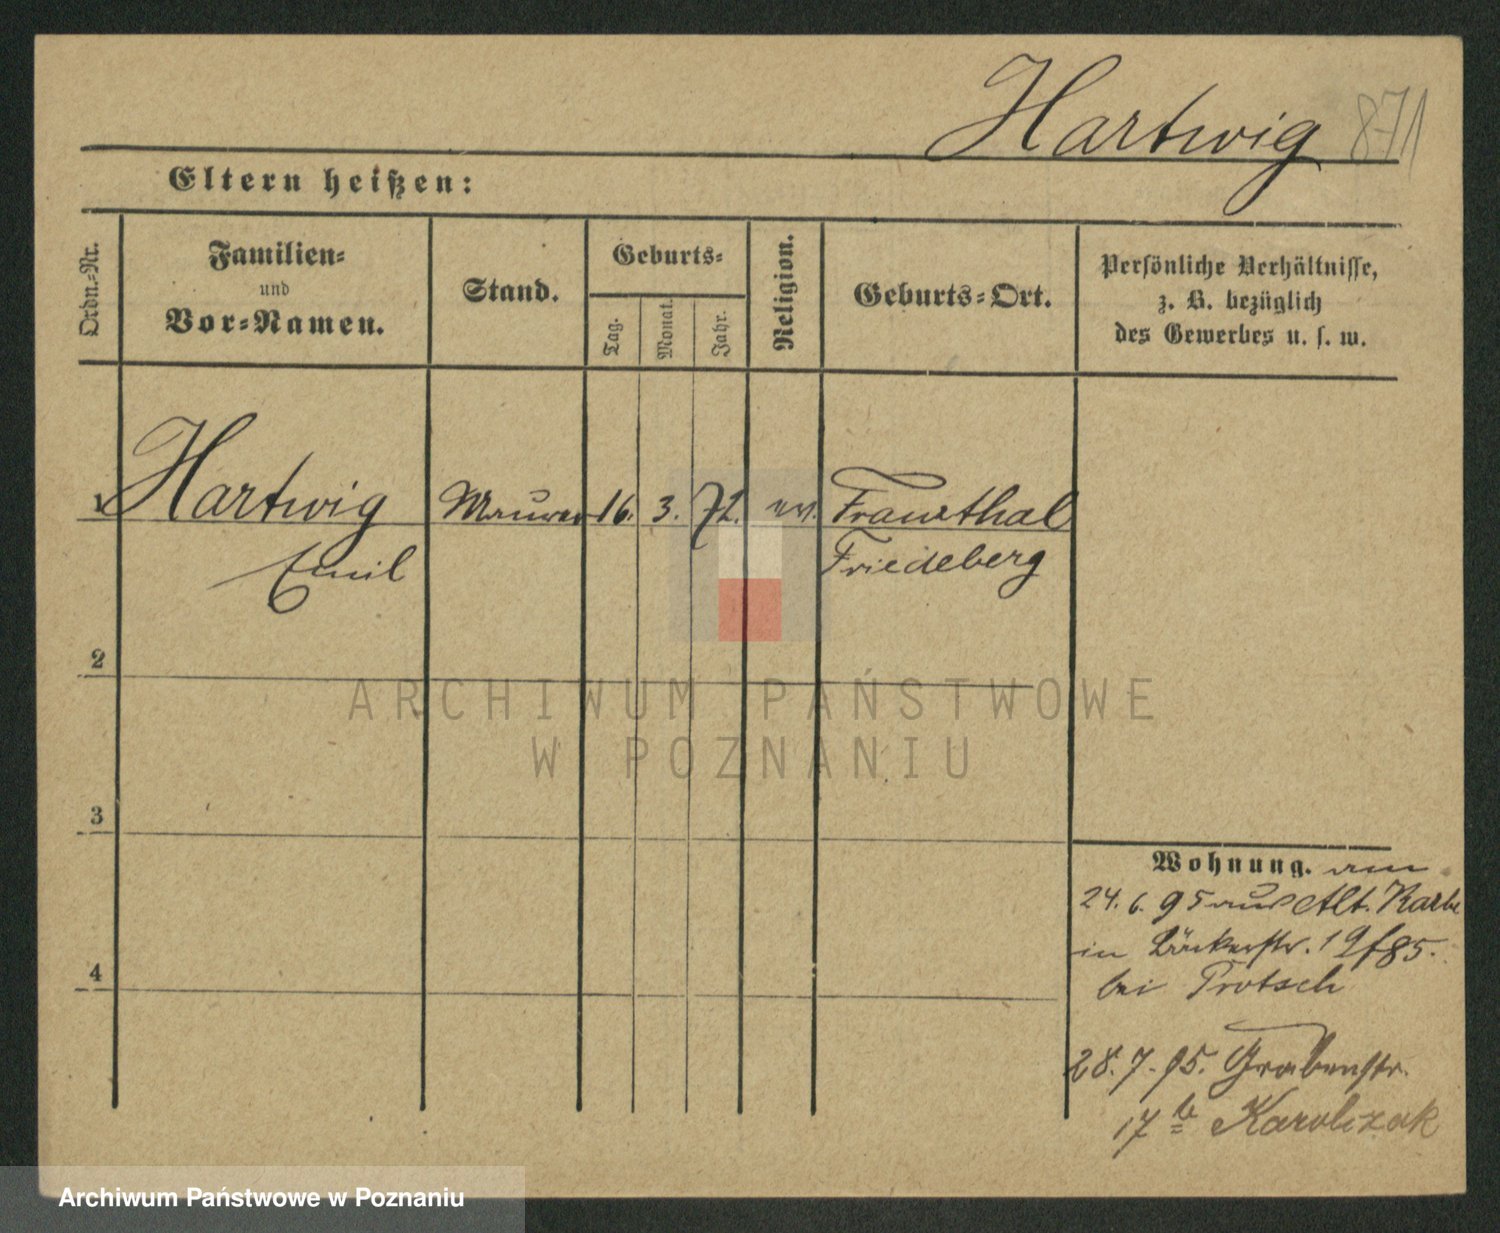 Hartwig 871
Eltern heißen:
Ordn.-Nr.
Familien-
und
Vor-Namen.
Stand.
Geburts-
Tag.
Monat.
Jahr.
Religion.
Geburts-Ort.
Persönliche Verhältnisse,
z. B. bezüglich
des Gewerbes u. s. w.
1 Hartwig Maurer 16. 3. 72. ev. Franzthal
Emil Friedeberg
2
ARCHIWUM PAŃSTWOWE
W POZNANIU
3
Wohnung. am
24. 6. 95 aus Alt. Karbe
in Bäckerstr. 19/85.
bei Protsch
4
28. 7. 95. Grabenstr.
17 b Karolczak
Archiwum Państwowe w Poznaniu